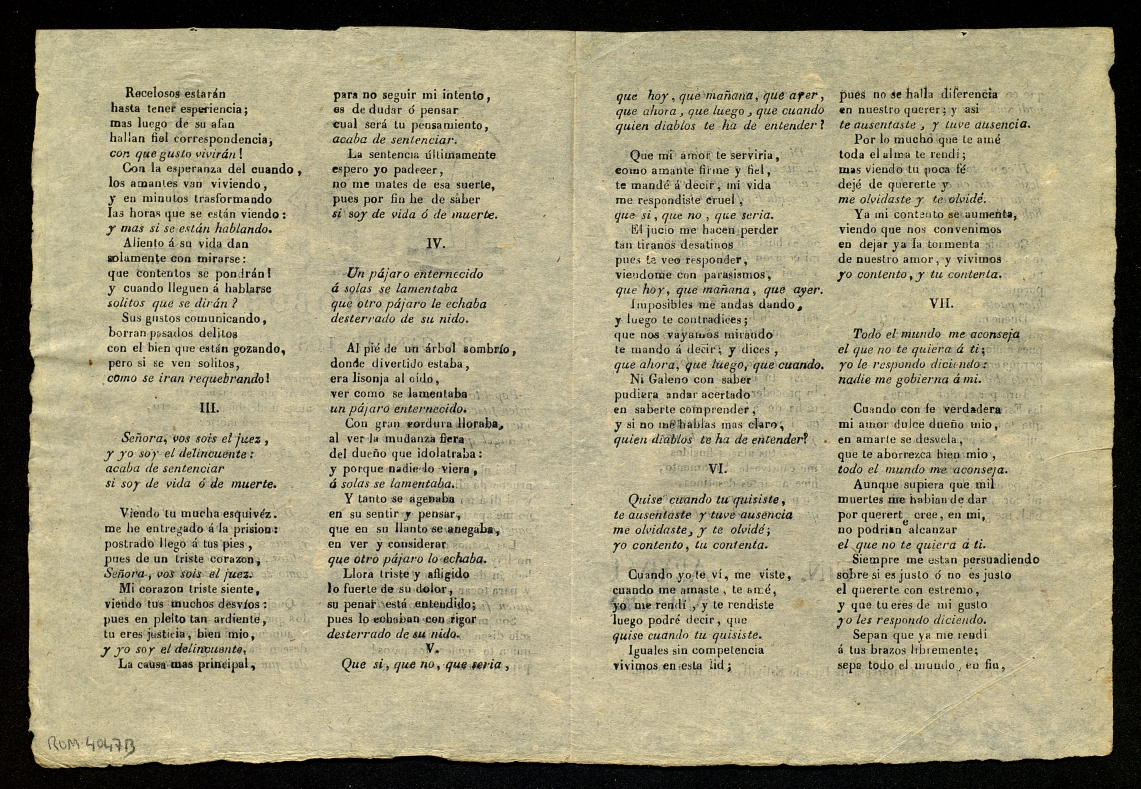 Recelosos estarán
hasta tener esperiencia;
mas luego de su afan
hallan fiel correspondencia,
con que gusto vivirán!
Con la esperanza del cuando,
los amantes van viviendo,
y en minutos trasformando
las horas que se están viendo:
y mas si se están hablando.
Aliento á su vida dan
solamente con mirarse:
que contentos se pondrán!
y cuando lleguen á hablarse
solitos que se dirán?
Sus gustos comunicando,
borran pasados delitos
con el bien que están gozando,
pero si se ven solitos,
como se iran requebrando!
III.
Señora, vos sois el juez,
y yo soy el delincuente:
acaba de sentenciar
si soy de vida ó de muerte.
Viendo tu mucha esquivéz.
me he entregado á la prision:
postrado llego á tus pies,
pues de un triste corazon,
Señora, vos sois el juez.
Mi corazon triste siente,
viendo tus muchos desvíos:
pues en pleito tan ardiente,
tu eres justicia, bien mio,
y yo soy el delincuente.
La causa mas principal,
para no seguir mi intento,
es de dudar ó pensar
cual será tu pensamiento,
acaba de sentenciar.
La sentencia últimamente
espero yo padecer,
no me mates de esa suerte,
pues por fin he de saber
si soy de vida ó de muerte.
IV.
Un pájaro enternecido
á solas se lamentaba
que otro pájaro le echaba
desterrado de su nido.
Al pié de un árbol sombrío,
donde divertido estaba,
era lisonja al oído,
ver como se lamentaba
un pájaro enternecido.
Con gran cordura lloraba,
al ver la mudanza fiera
del dueño que idolatraba:
y porque nadie lo viera,
á solas se lamentaba.
Y tanto se agenaba
en su sentir y pensar,
que en su llanto se anegaba,
en ver y considerar
que otro pájaro lo echaba.
Llora triste y afligido
lo fuerte de su dolor,
su penar está entendido;
pues lo echaban con rigor
desterrado de su nido.
V.
Que si, que no, que seria,
que hoy, que mañana, que ayer,
que ahora, que luego, que cuando
quien diablos te ha de entender?
Que mi amor te serviria,
como amante firme y fiel,
te mandé á decir, mi vida
me respondiste cruel,
que si, que no, que seria.
El jucio me hacen perder
tan tiranos desatinos
pues te veo responder,
viendome con parasismos,
que hoy, que mañana, que ayer.
Imposibles me andas dando,
y luego te contradices;
que nos vayamos mirando
te mando á decir; y dices,
que ahora, que luego, que cuando.
Ni Galeno con saber
pudiera andar acertado
en saberte comprender,
y si no me hablas mas claro,
quien diablos te ha de entender?
VI.
Quise cuando tu quisiste,
te ausentaste y tuve ausencia
me olvidaste, y te olvidé;
yo contento, tu contenta.
Cuando yo te ví, me viste,
cuando me amaste, te amé,
yo me rendí, y te rendiste
luego podré decir, que
quise cuando tu quisiste.
Iguales sin competencia
vivimos en esta lid;
pues no se halla diferencia
en nuestro querer; y asi
te ausentaste, y tuve ausencia.
Por lo mucho que te amé
toda el alma te rendi;
mas viendo tu poca fé
dejé de quererte y
me olvidaste y te olvidé.
Ya mi contento se aumenta,
viendo que nos convenimos
en dejar ya la tormenta
de nuestro amor, y vivimos
yo contento, y tu contenta.
VII.
Todo el mundo me aconseja
el que no te quiera á ti;
yo le respondo diciendo:
nadie me gobierna á mi.
Cuando con fe verdadera
mi amor dulce dueño mio,
en amarte se desvela,
que te aborrezca bien mio,
todo el mundo me aconseja.
Aunque supiera que mil
muertes me habian de dar
por quererte cree, en mi,
no podrian alcanzar
el que no te quiera á ti.
Siempre me estan persuadiendo
sobre si es justo ó no es justo
el quererte con estremo,
y que tu eres de mi gusto
yo les respondo diciendo.
Sepan que ya me rendi
á tus brazos libremente;
sepa todo el mundo, en fin,
ROM 4047B